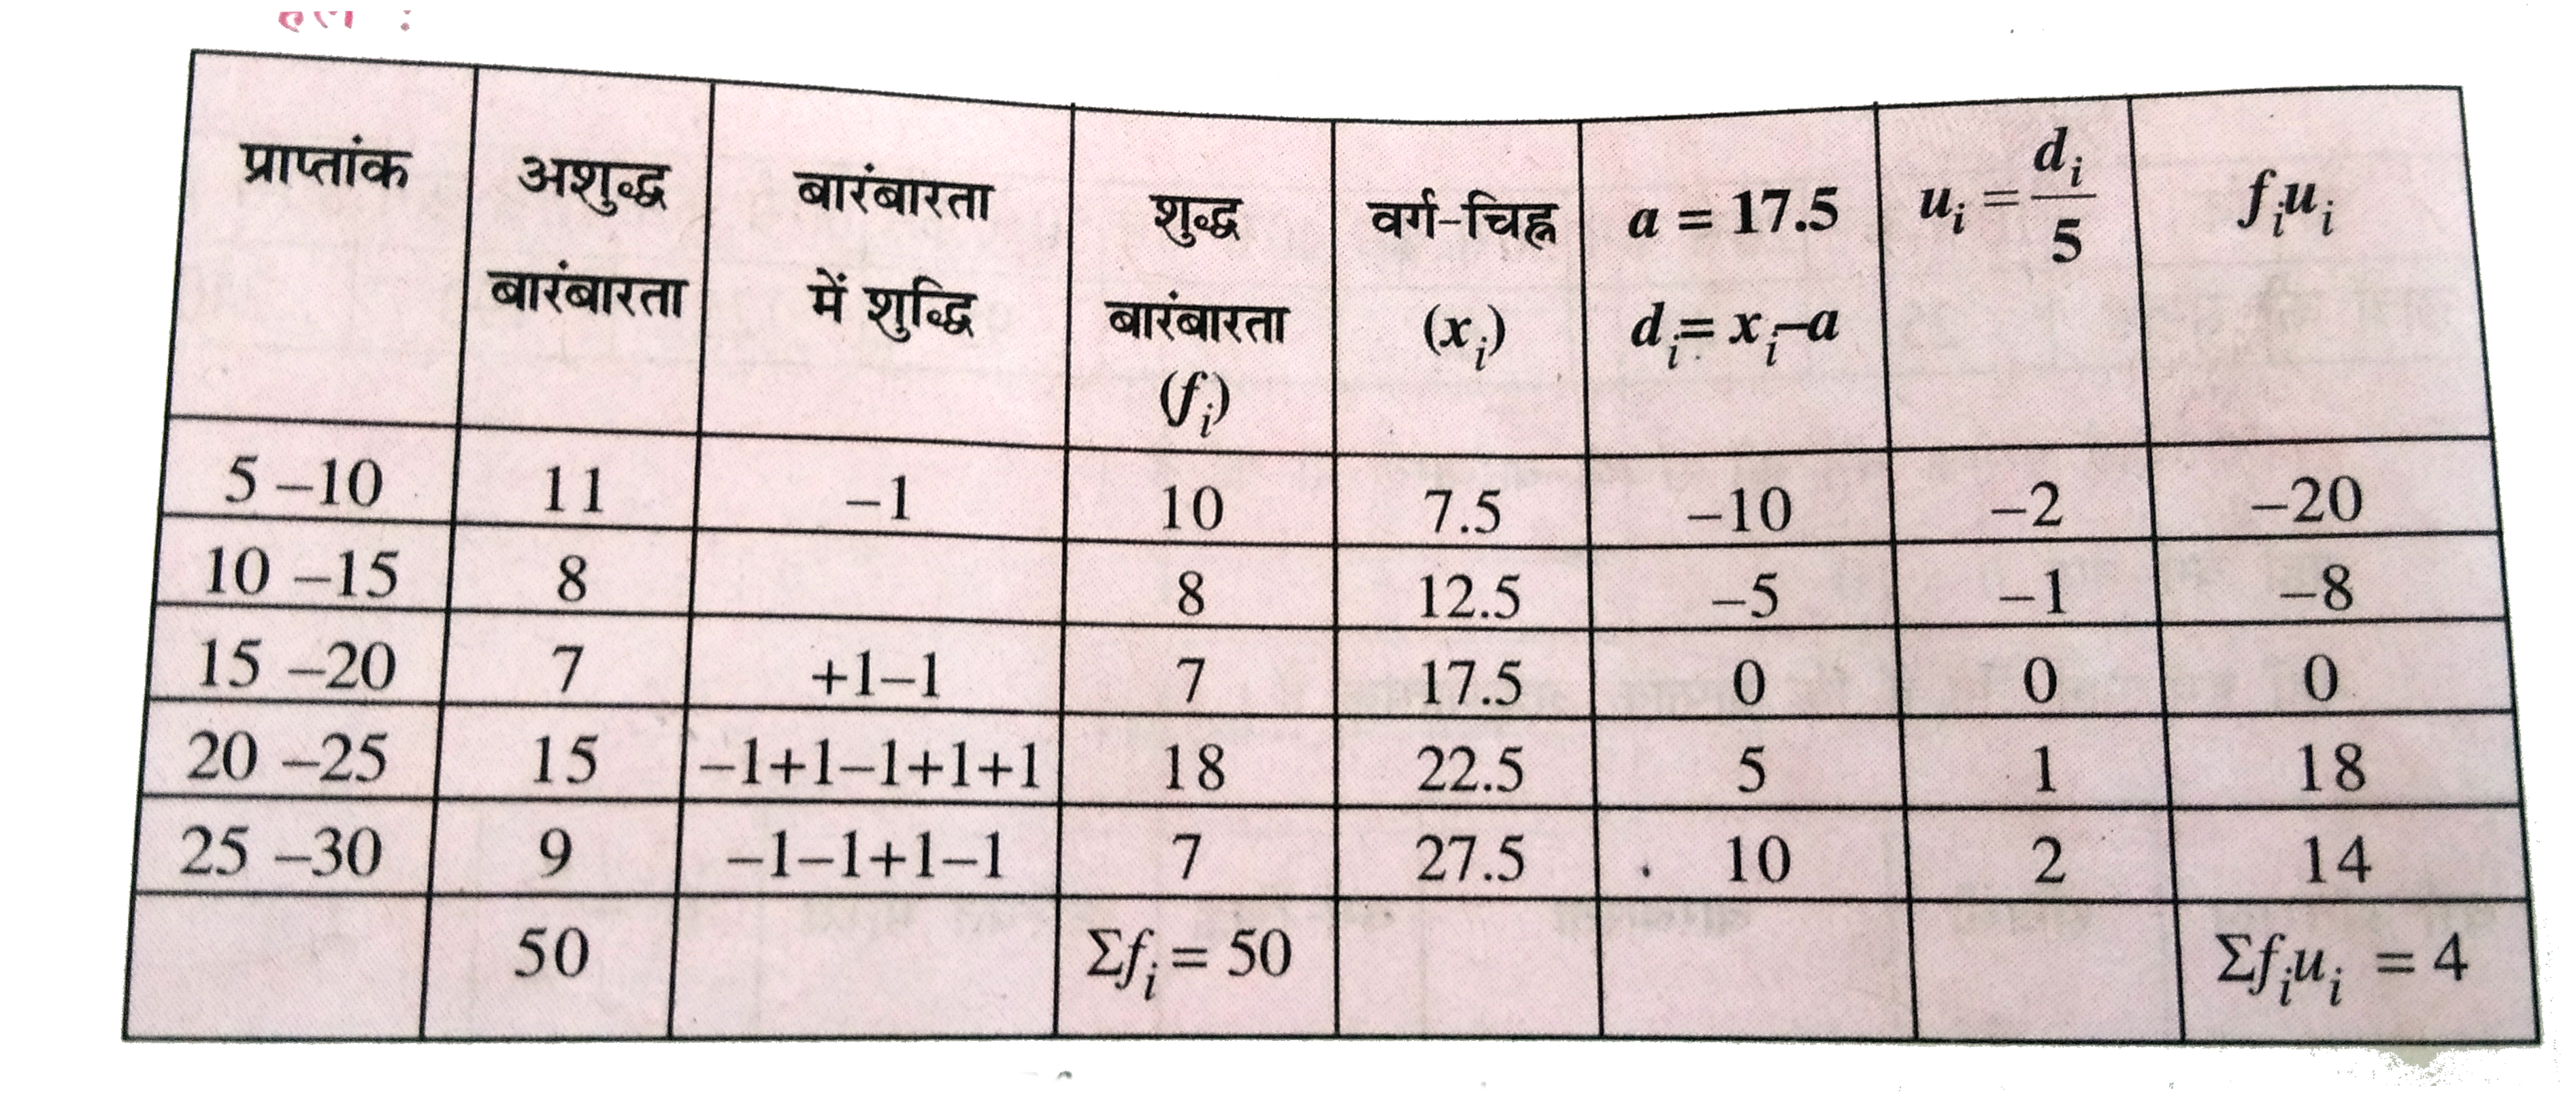 प्राप्तांक | अशुद्ध बारंबारता | बारंबारता में शुद्धि | शुद्ध बारंबारता (f_i) | वर्ग-चिह्न (x_i) | a = 17.5 d_i = x_i–a | u_i = d_i/5 | f_i u_i
5 –10 | 11 | –1 | 10 | 7.5 | –10 | –2 | –20
10 –15 | 8 | | 8 | 12.5 | –5 | –1 | –8
15 –20 | 7 | +1–1 | 7 | 17.5 | 0 | 0 | 0
20 –25 | 15 | –1+1–1+1+1 | 18 | 22.5 | 5 | 1 | 18
25 –30 | 9 | –1–1+1–1 | 7 | 27.5 | 10 | 2 | 14
 | 50 | | Σf_i = 50 | | | | Σf_i u_i = 4